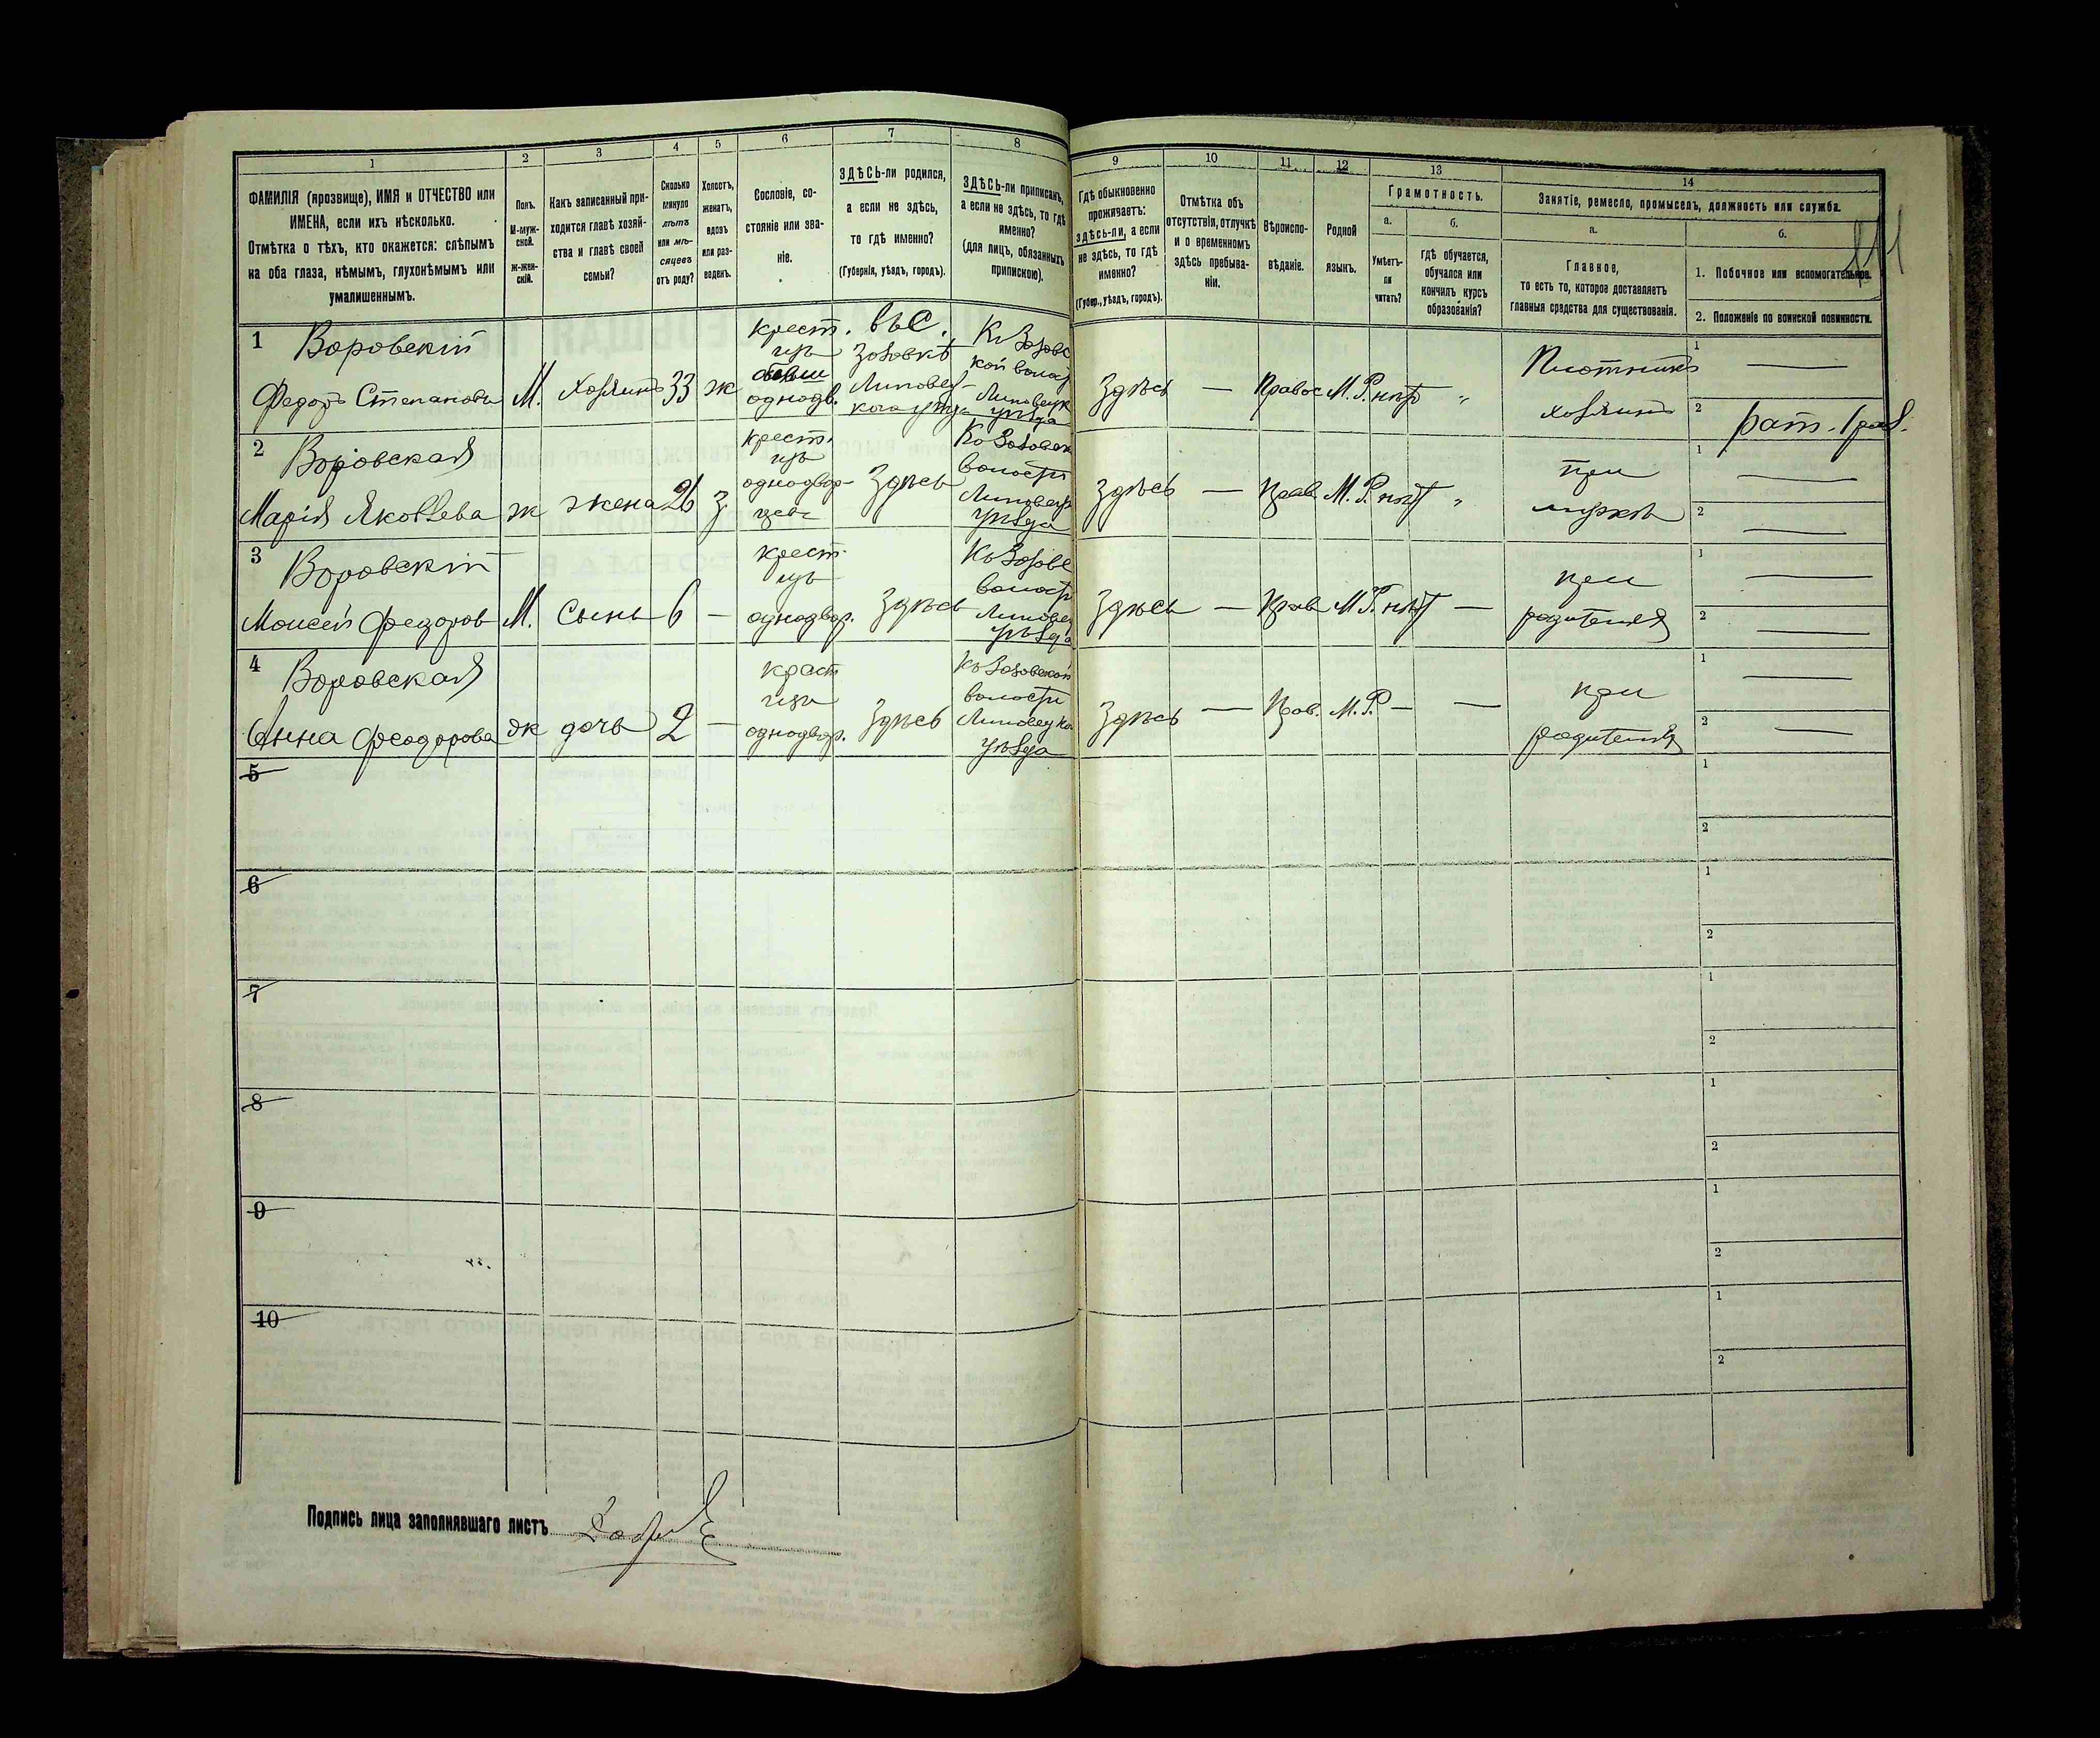 1
2
3
4
5
6
7
8
ФАМИЛІЯ (прозвище), ИМЯ и ОТЧЕСТВО или
ИМЕНА, если ихъ нѣсколько.
Отмѣтка о тѣхъ, кто окажется: слѣпымъ
на оба глаза, нѣмымъ, глухонѣмымъ или
умалишеннымъ.
Полъ.
М-муж-
ской.
ж-жен-
скій.
Какъ записанный при-
ходится главѣ хозяй-
ства и главѣ своей
семьи?
Сколько
минуло
лѣтъ
или мѣ-
сяцевъ
отъ роду?
Холостъ,
женатъ,
вдовъ
или раз-
веденъ.
Сословіе, со-
стояніе или зва-
ніе.
ЗДѢСЬ-ли родился,
а если не здѣсь,
то гдѣ именно?
(Губернія, уѣздъ, городъ).
ЗДѢСЬ-ли приписанъ,
а если не здѣсь, то гдѣ
именно?
(для лицъ, обязанныхъ
припискою).
9
10
11
12
13
14
Гдѣ обыкновенно
проживаетъ:
здѣсь-ли, а если
не здѣсь, то гдѣ
именно?
(Губер., уѣздъ, городъ).
Отмѣтка объ
отсутствіи, отлучкѣ
и о временномъ
здѣсь пребыва-
ніи.
Вѣроиспо-
вѣданіе.
Родной
языкъ.
Грамотность.
а.
Умѣетъ-
ли
читать?
б.
Гдѣ обучается,
обучался или
кончилъ курсъ
образованія?
Занятіе, ремесло, промыселъ, должность или служба.
а.
Главное,
то есть то, которое доставляетъ
главныя средства для существованія.
б.
1. Побочное или вспомогательное.
2. Положеніе по воинской повинности.
1 Воровскій
Федоръ Степановъ
М.
Хозяинъ
33
ж
крест.
изъ
однодв.
въ с.
Зозовкѣ
Липовец-
каго уѣзда
Къ Зозовс
кой волост
Липовецк
уѣзда
Здѣсь
—
Правос
М. Р.
нѣтъ
"
Плотникъ
хозяинъ
1 —
2 рат. 1 раз.
2 Воровская
Марія Яковлева
ж
жена
26
з
крест.
изъ
однодвор-
цевъ
Здѣсь
Къ Зозовск
волости
Липовецк
уѣзда
Здѣсь
—
Прав
М. Р.
нѣтъ
"
при
мужѣ
1 —
2 —
3 Воровскій
Моисей Федоров
М.
Сынъ
6
—
крест.
изъ
однодвор.
Здѣсь
Къ Зозовс
волости
Липовец
уѣзда
Здѣсь
—
Прав
М. Р.
нѣтъ
—
при
родителя
1 —
2 —
4 Воровская
Анна Феодорова
ж
дочь
2
—
краст
изъ
однодвор.
Здѣсь
Къ Зозовской
волости
Липовецка
уѣзда
Здѣсь
—
Пров.
М. Р.
—
—
при
родителя
1 —
2 —
5
1
2
6
1
2
7
1
2
8
1
2
9
1
2
10
1
2
Подпись лица заполнявшаго листъ